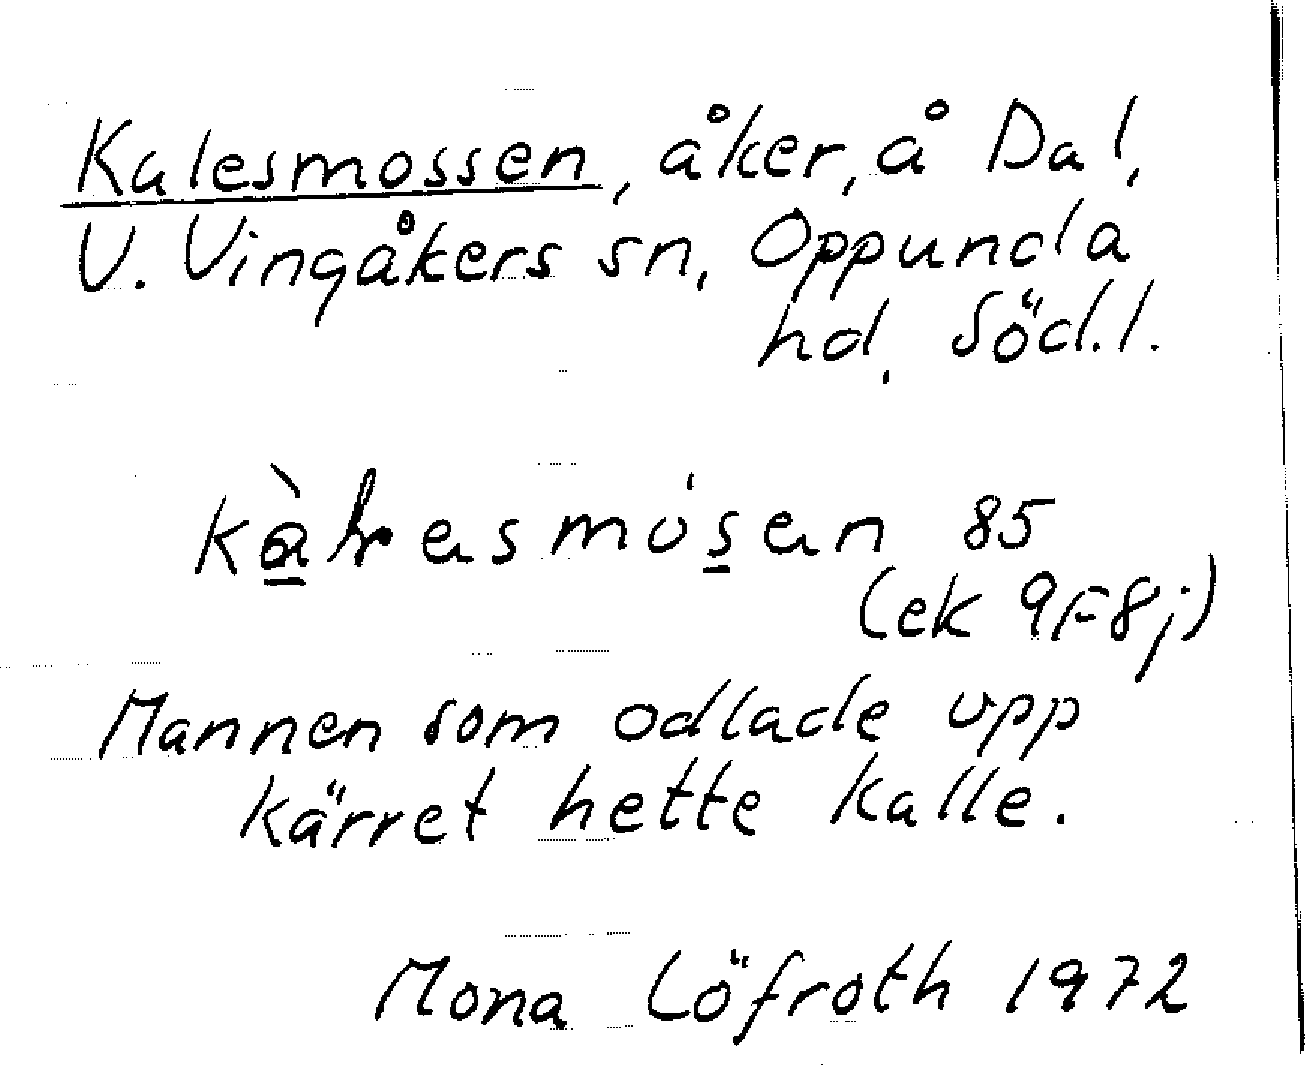 Kalesmossen, åker, å Dal,
V. Vingåkers sn, Oppunda
hd. Söd.l.
85
(ek 9F8j)
Mannen som odlade upp
kärret hette Kalle.
Mona Löfroth 1972